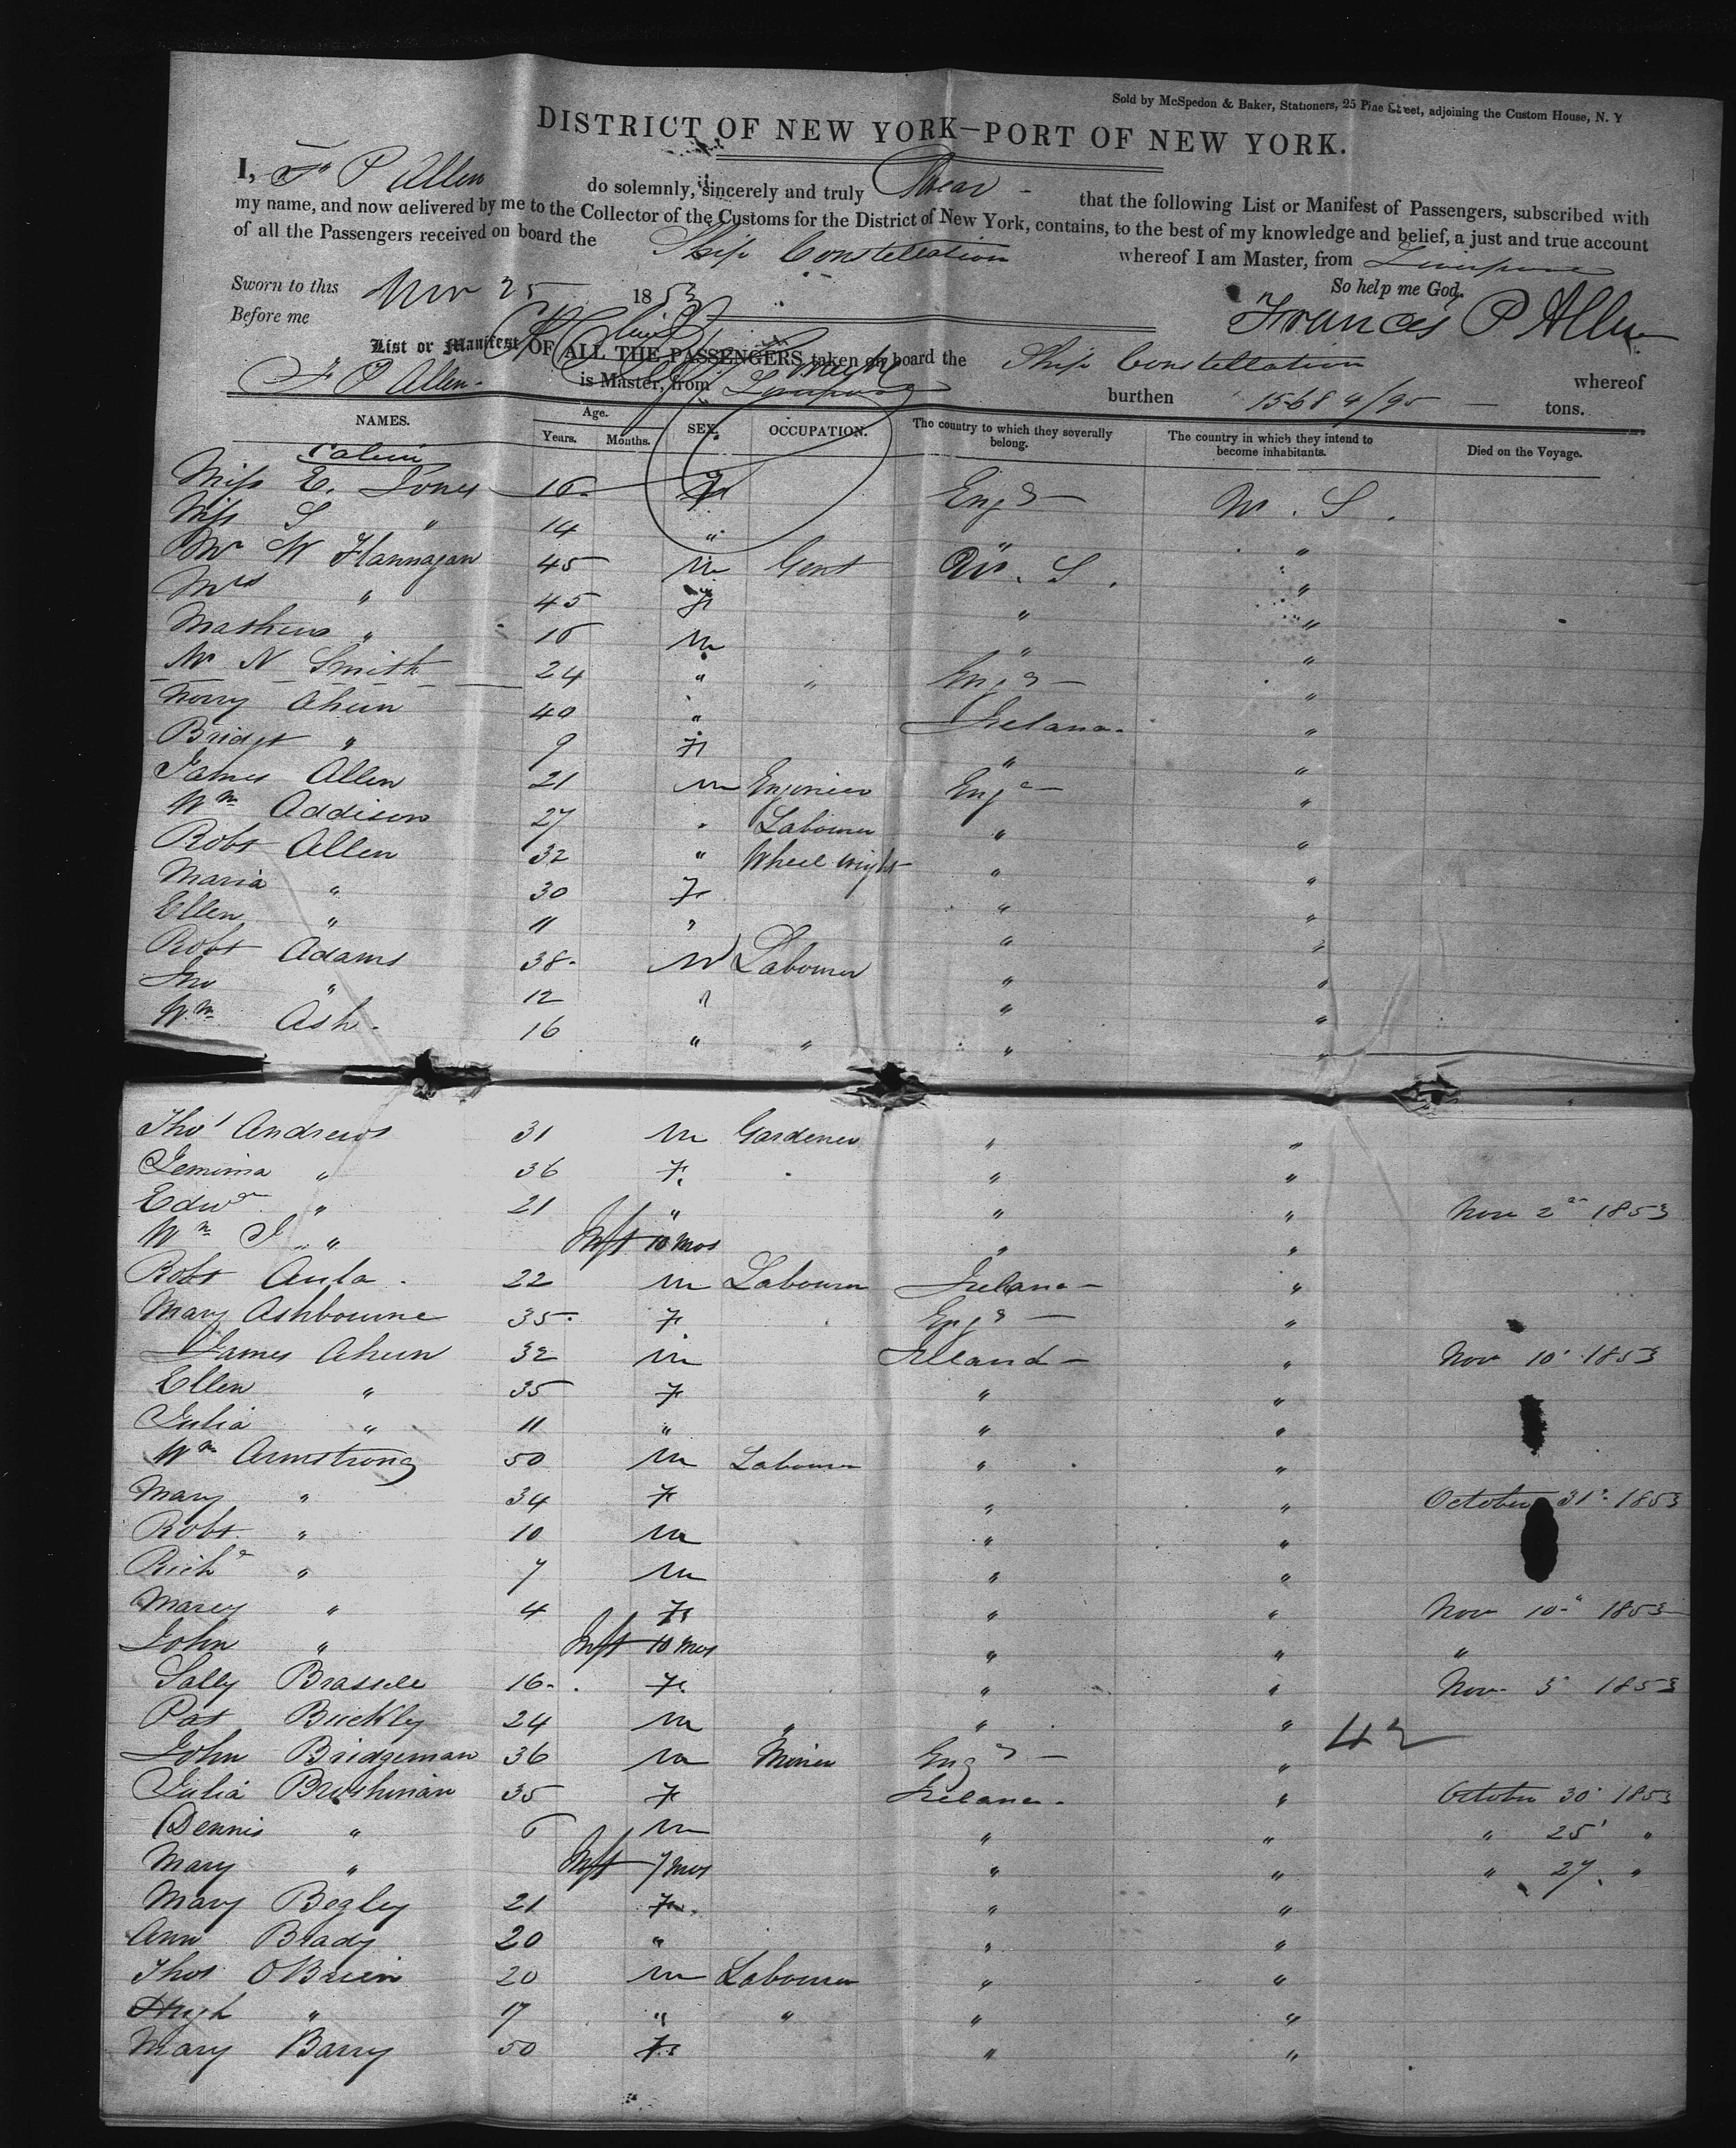 Sold by McSpedon & Baker, Stationers, 25 Pine Street, adjoining the Custom House, N. Y
DISTRICT OF NEW YORK—PORT OF NEW YORK.
I, F P Allen do solemnly, sincerely and truly Swear that the following List or Manifest of Passengers, subscribed with
my name, and now delivered by me to the Collector of the Customs for the District of New York, contains, to the best of my knowledge and belief, a just and true account
of all the Passengers received on board the Ship Constellation whereof I am Master, from Liverpool
So help me God.
Sworn to this Nov 25 1853
Before me Francis P Allen
List or Manifest OF ALL THE PASSENGERS taken on board the Ship Constellation whereof
F P Allen is Master, from Liverpool burthen 1568 4/95 tons.
NAMES. Age. Years. Months. SEX. OCCUPATION. The country to which they severally belong. The country in which they intend to become inhabitants. Died on the Voyage.
Cabin
Miss E. Jones 16 F Engd U. S.
Miss S " 14 " " "
Mr W Flannagan 45 M Gent U. S. "
Mrs " 45 F " "
Mathew " 16 M " "
Mr N Smith 24 " " Engd "
Norry Ahern 40 " Ireland "
Bridget " 9 F " "
James Allen 21 M Engineer Engd "
Wm Addison 27 " Labourer " "
Robt Allen 32 " Wheel wright " "
Maria " 30 F " "
Ellen " 11 " " "
Robt Adams 38 M Labourer " "
Jno " 12 " " "
Wm Ash 16 " " " "
Thos Andrews 31 M Gardener " "
Jemima " 36 F " "
Edwd " 21 " " " Nov 2d 1853
Wm J " Inft 10 mos " "
Robt 22 M Labourer Ireland "
Mary Ashbourne 35 F Engd "
James Ahern 32 M Ireland " Nov 10 1853
Ellen " 35 F " "
Julia " 11 " " "
Wm Armstrong 50 M Labourer " "
Mary " 34 F " " October 31 1853
Robt " 10 M " "
Richd " 7 M " "
Marey " 4 F " " Nov 10 1853
John " Inft 10 mos " " "
Sally Brassele 16 F " " Nov 3 1853
Pat Buckly 24 M " " " 42
John Bridgeman 36 M Miner Engd "
Julia Brushnian 35 F Ireland " October 30 1853
Dennis " 6 M " " " 25 "
Mary " Inft 7 mos " " " 27 "
Mary Begley 21 F " "
Ann Brady 20 " " "
Thos OBrien 20 M Labourer " "
Hugh " 17 " " " "
Mary Barry 50 F " "